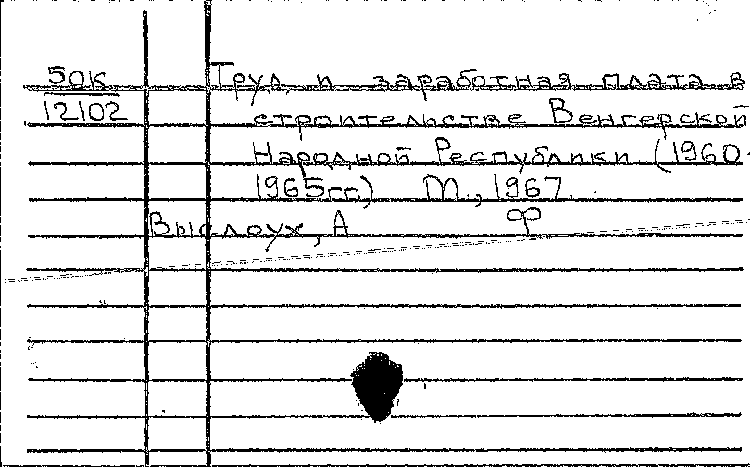 50к Труд и заработная плата в
12102 строительстве Венгерской
Народной Республики (1960-
1965гг.) М., 1967.
Выслоух, А ф